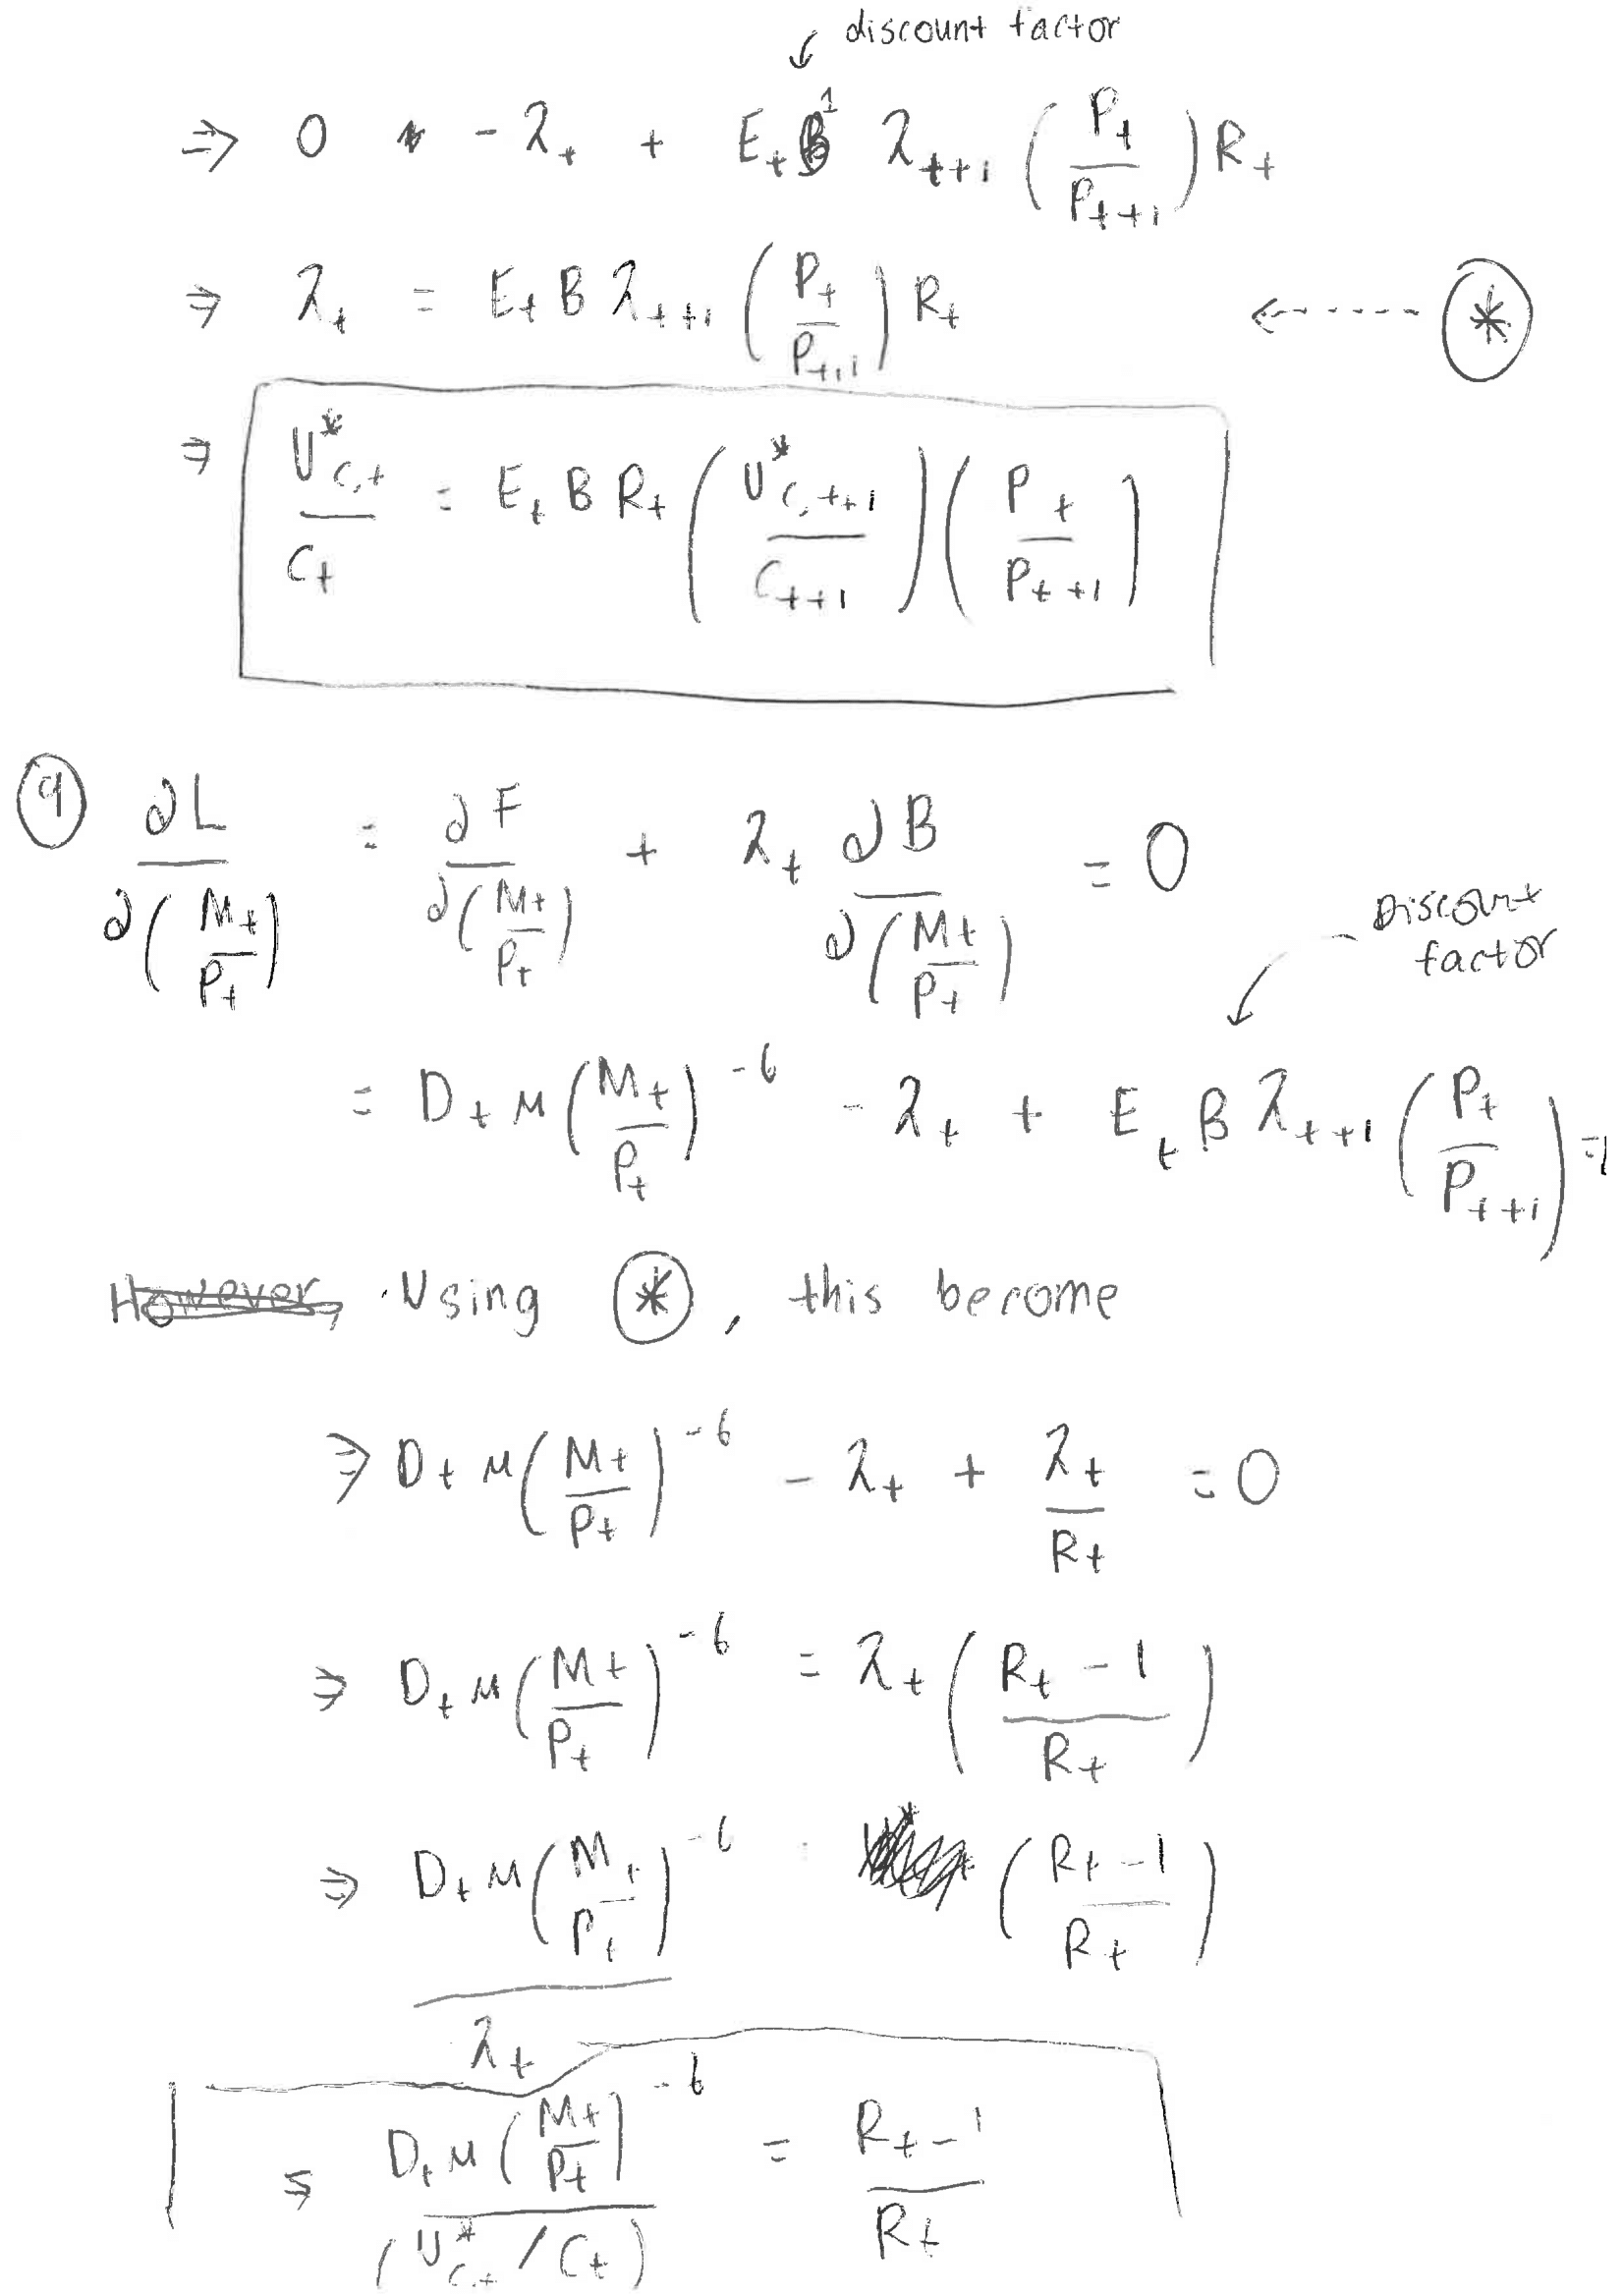 discount factor
⇒ 0 = -λₜ + Eₜ β¹ λₜ₊₁ (Pₜ / Pₜ₊₁) Rₜ
⇒ λₜ = Eₜ B λₜ₊₁ (Pₜ / Pₜ₊₁) Rₜ ⟵----- (*)
⇒ U*c,t / Cₜ = Eₜ B Rₜ (U*c,t+1 / Cₜ₊₁) (Pₜ / Pₜ₊₁)
(9) ∂L / ∂(Mₜ/Pₜ) = ∂F / ∂(Mₜ/Pₜ) + λₜ ∂B / ∂(Mₜ/Pₜ) = 0
Discount
factor
= Dₜ μ (Mₜ / Pₜ)^-6 - λₜ + Eₜ β λₜ₊₁ (Pₜ / Pₜ₊₁) =
However, Using (*), this become
⇒ Dₜ μ (Mₜ / Pₜ)^-6 - λₜ + λₜ / Rₜ = 0
⇒ Dₜ μ (Mₜ / Pₜ)^-6 = λₜ ((Rₜ - 1) / Rₜ)
⇒ Dₜ μ (Mₜ / Pₜ)^-6 / λₜ = ((Rₜ - 1) / Rₜ)
⇒ Dₜ μ (Mₜ / Pₜ)^-6 / (U*c,t / Cₜ) = (Rₜ - 1) / Rₜ